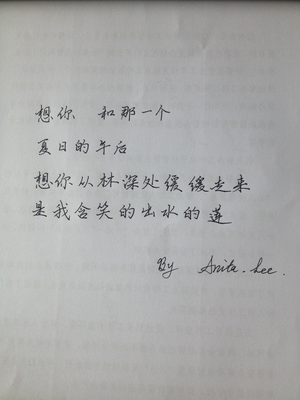 想你 和那一个
夏日的午后
想你从林深处缓缓走来
是我含笑的出水的莲
By Anita. Lee.